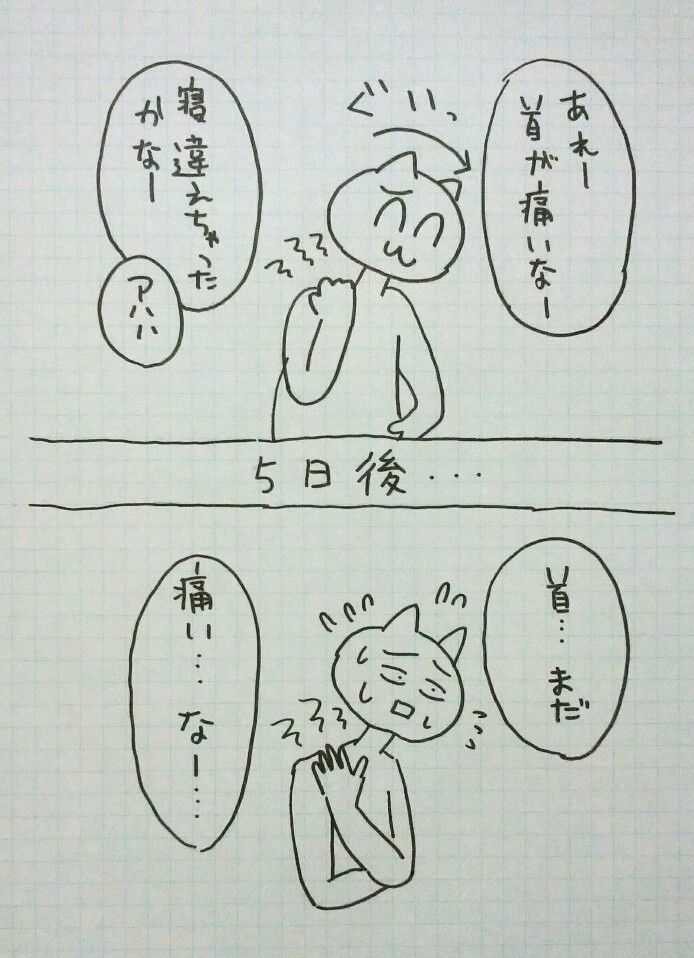 あれー
首が痛いなー
ぐいっ
寝違えちゃった
かなー
アハハ
5日後...
首…まだ
痛い…なー…